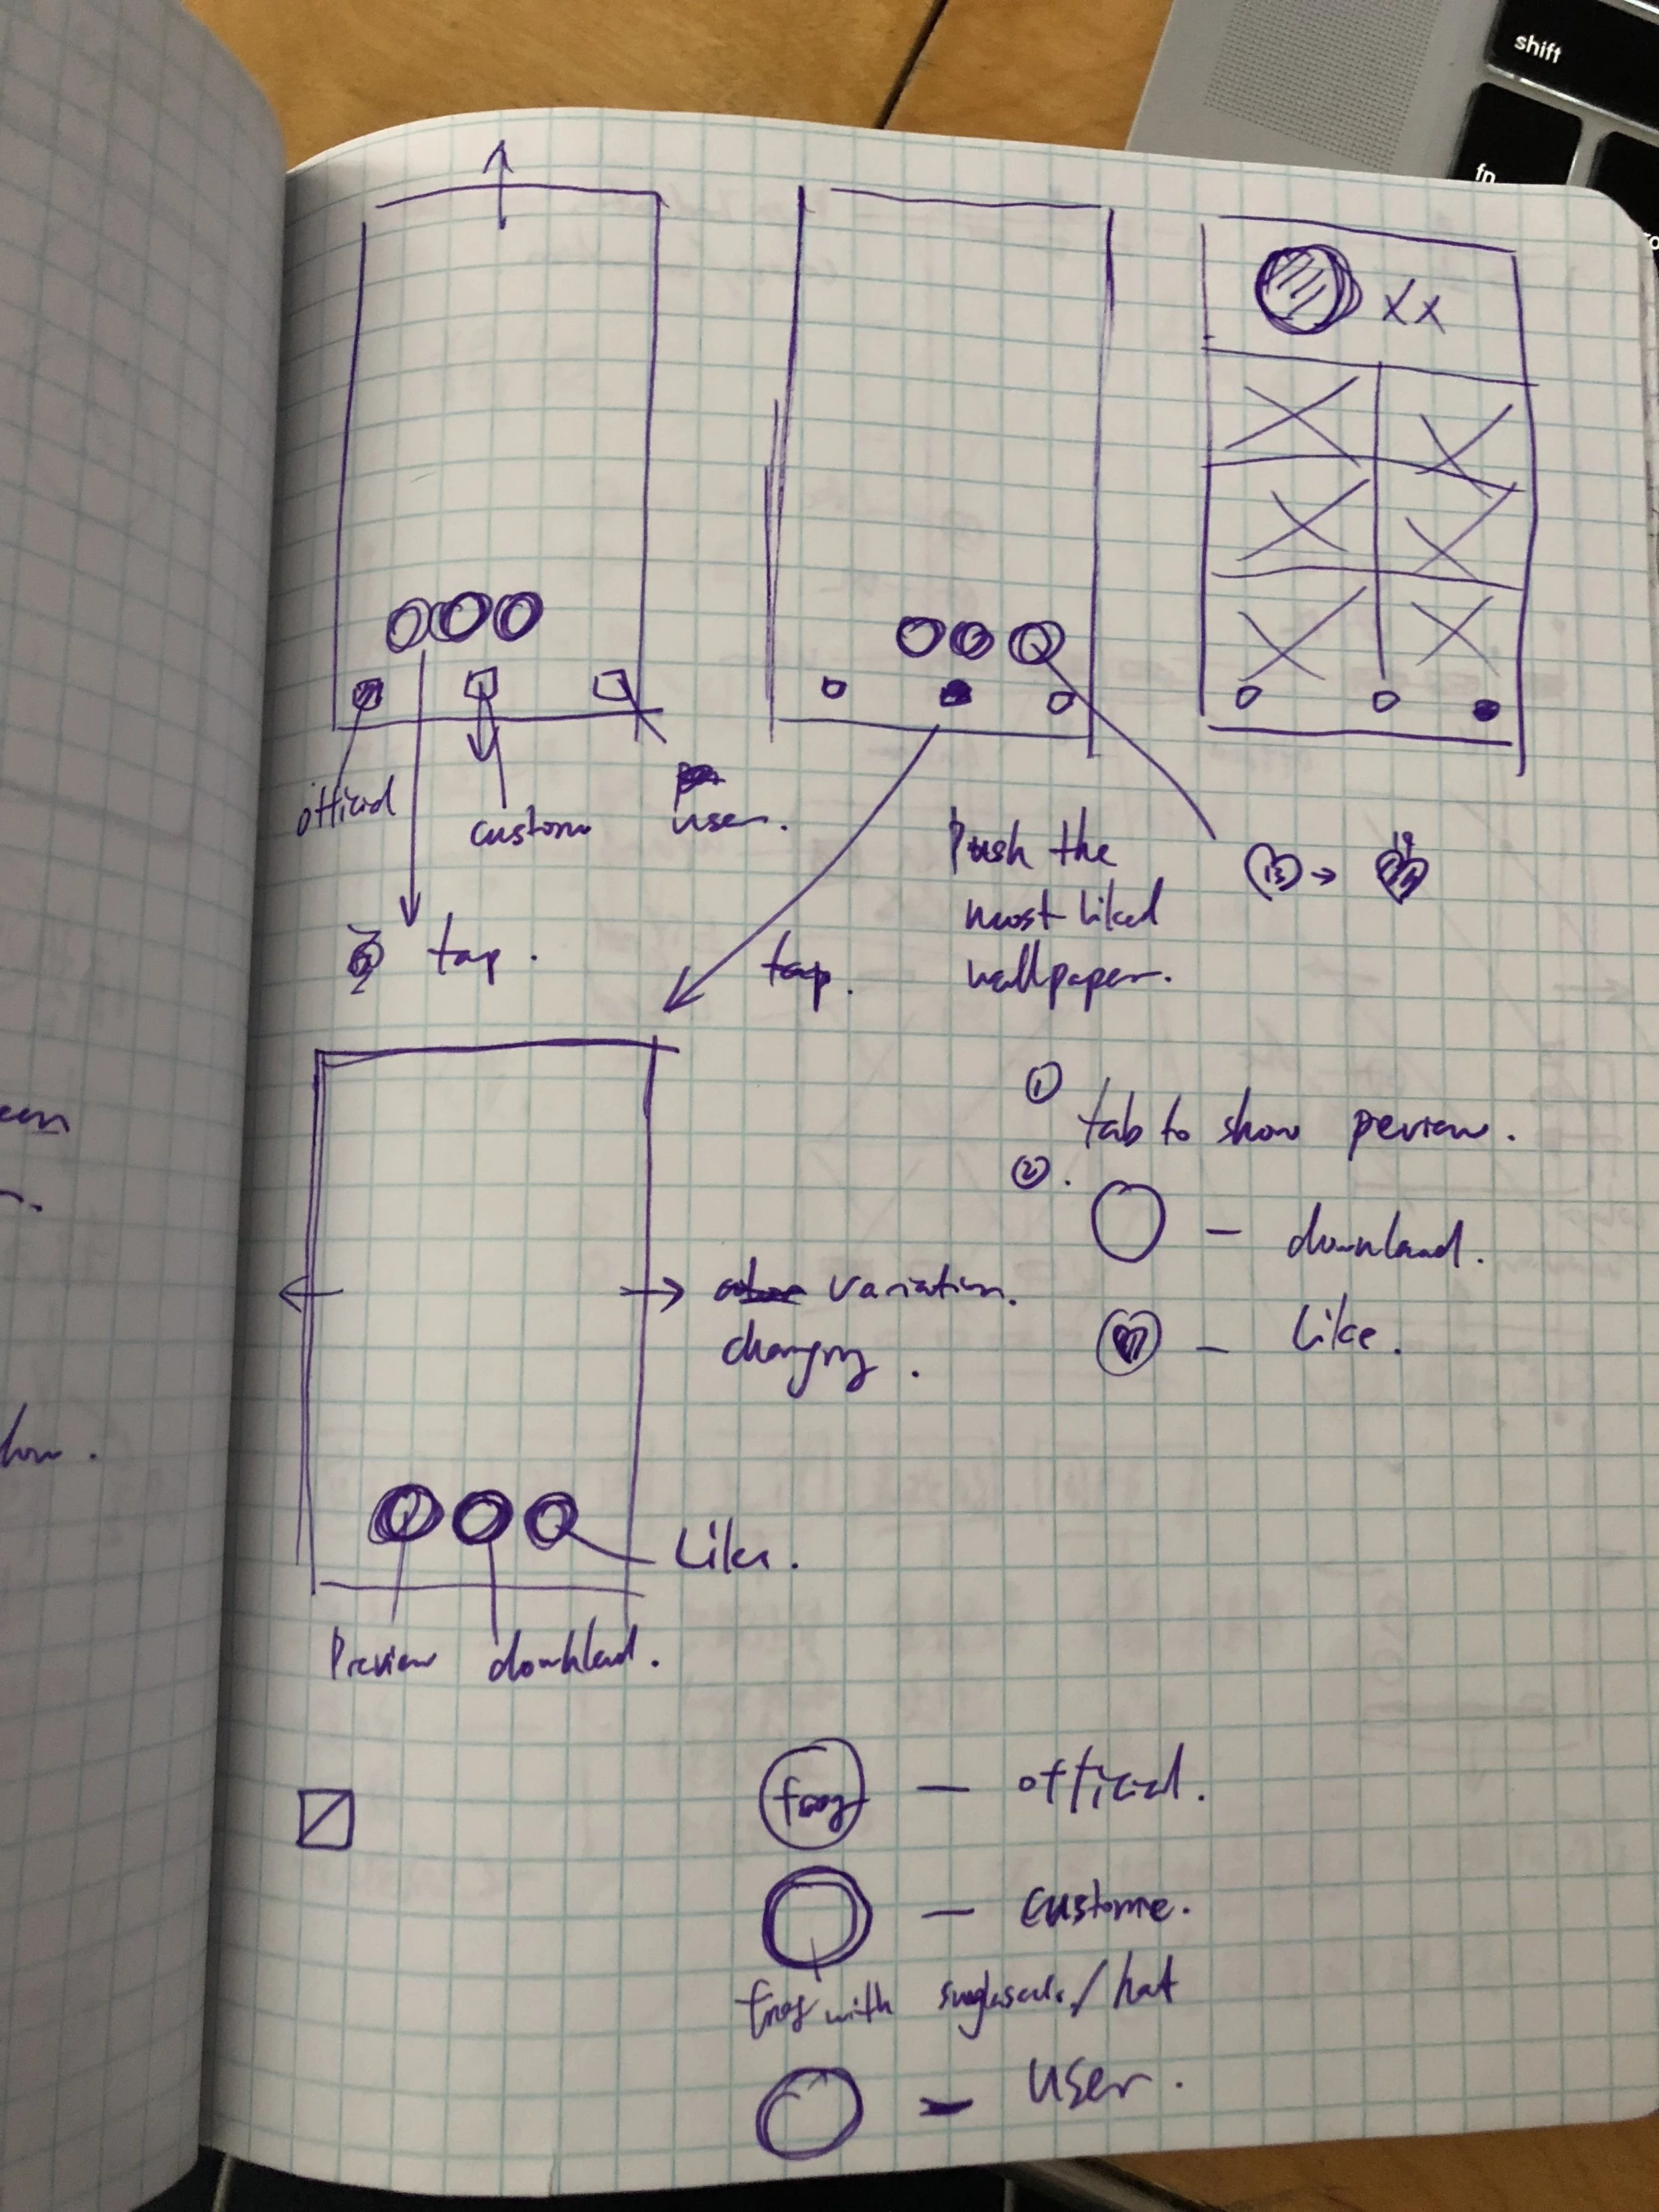 shift
fn
XX
official
custom
user.
tap.
tap.
Push the
most liked
wallpaper.
15 →
①
tab to show preview.
②.
— download.
— Like.
variation.
changing.
Like.
Preview download.
frog — official.
— custome.
frog with
/hat
— user.